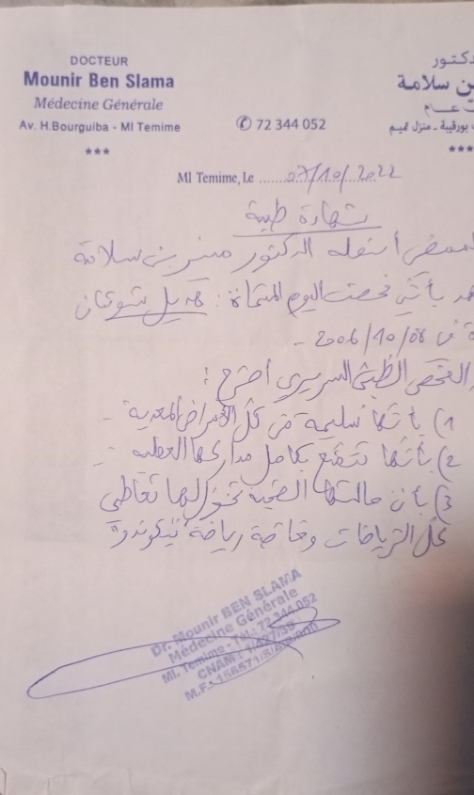 DOCTEUR
Mounir Ben Slama
Médecine Générale
Av. H.Bourguiba - Ml Temime
***
✆ 72 344 052
دكتور
ن سلامة
عـــام
بورقيبة - منزل تميم
***
Ml Temime, Le ....07/10/2022
شهادة طبية
الممضي أسفله الدكتور منير بن سلامة
بأنني فحصت اليوم المسماة : هديل شوشان
في 2006/10/08 -
الفحص الطبي السريري أصرح :
1) بأنها سليمة من كل الأمراض المعدية -
2) بأنها تتمتع بكامل مداركها العقلية -
3) بأن حالتها الصحية تخول لها تعاطي
كل الرياضات وخاصة رياضة تيكوندو
Dr. Mounir BEN SLAMA
Médecine Générale
Ml. Temime - Tél.: 72 344 052
CNAM :
M.F.: